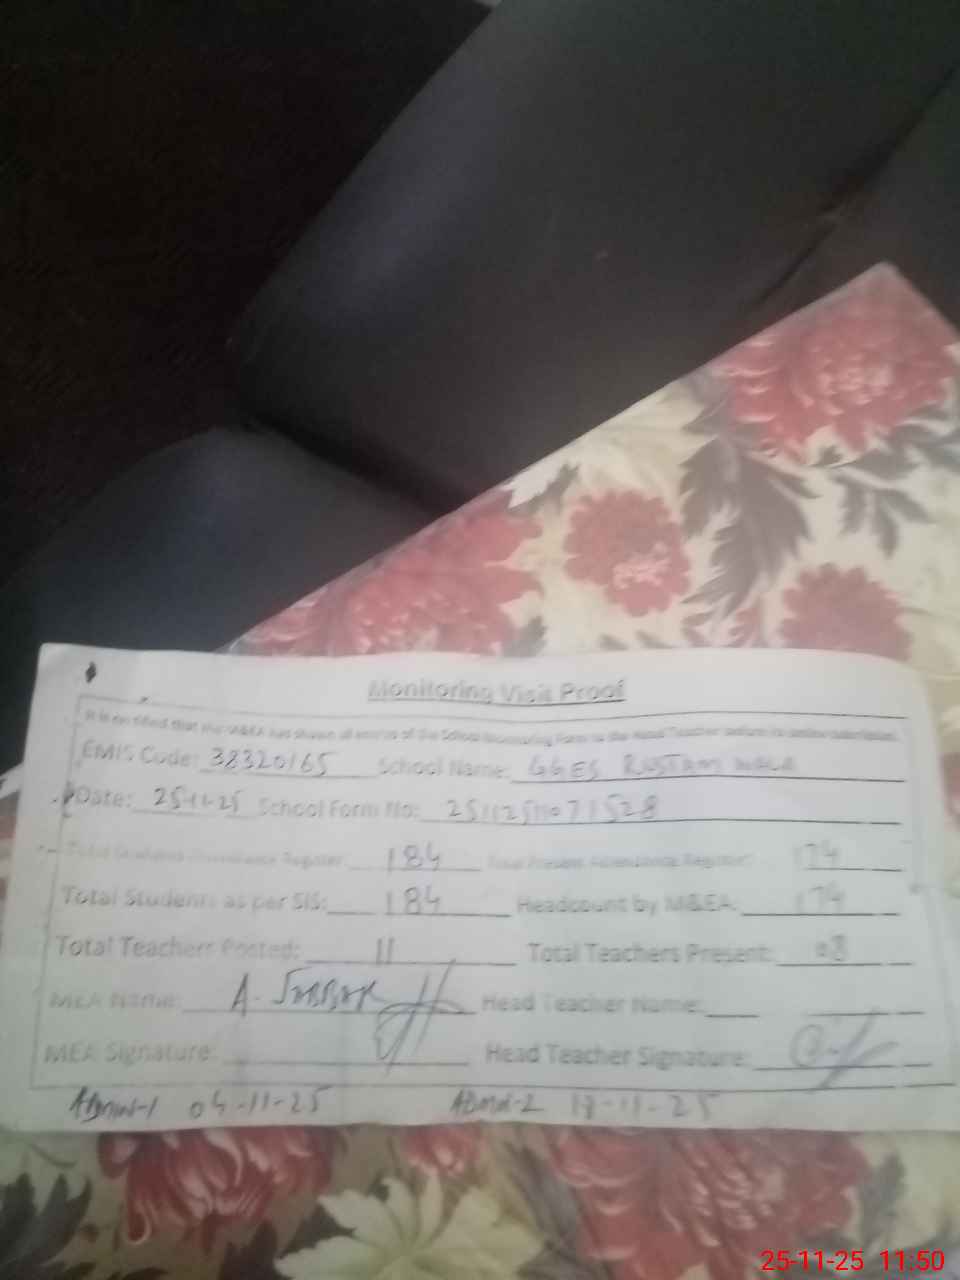 Monitoring Visit Proof
It is certified that the M&EA has shown all entries of the School Monitoring Form to the Head Teacher before its online submission.
EMIS Code: 38320165 School Name: GGES RUSTAM WALA
Date: 25-11-25 School Form No:
Total Students Attendance Register: 184 Total Present Attendance Register: 174
Total Students as per SIS: 184 Headcount by M&EA: 174
Total Teachers Posted: 11 Total Teachers Present: 08
MEA Name: A. JABBAR Head Teacher Name:
MEA Signature: Head Teacher Signature:
Admin-1 04-11-25 Admn-2 18-11-25
25-11-25 11:50